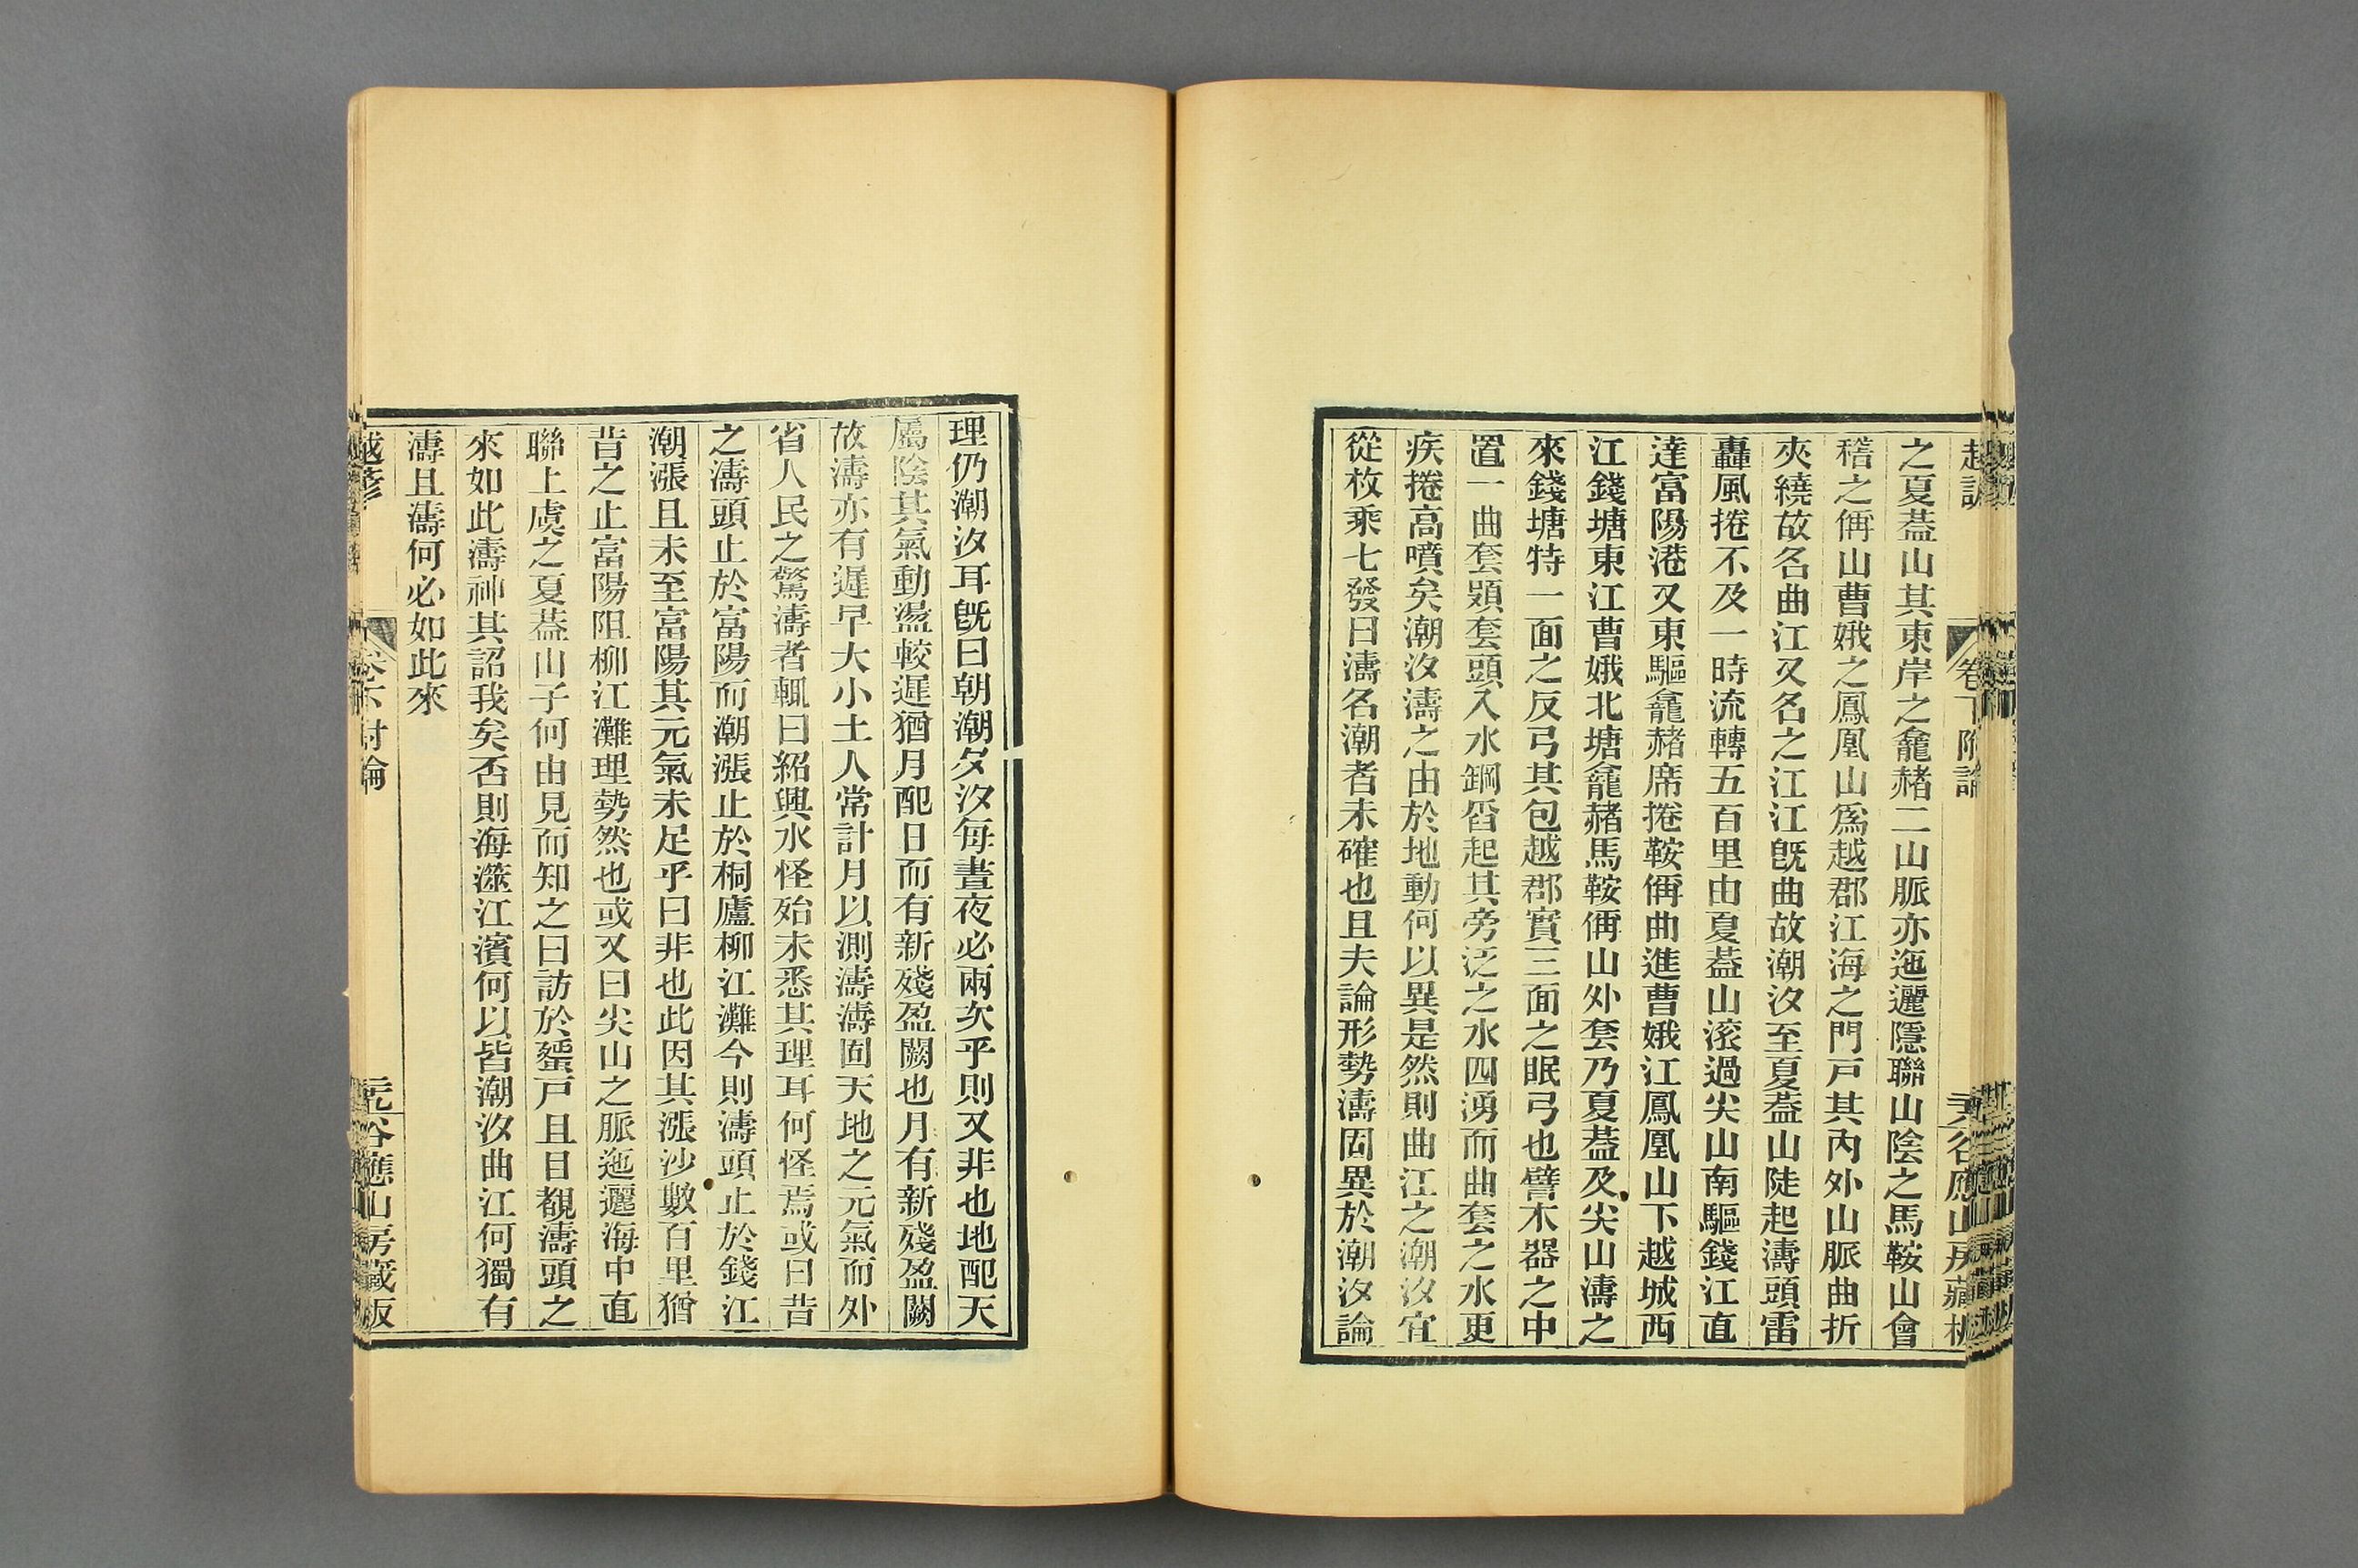 越諺 卷下附論 谷應山房藏板
之夏蓋山其東岸之龕赭二山脈亦迤邐隱聯山陰之馬鞍山會
稽之偁山曹娥之鳳凰山爲越郡江海之門戸其內外山脈曲折
夾繞故名曲江又名之江江旣曲故潮汐至夏蓋山陡起濤頭雷
轟風捲不及一時流轉五百里由夏蓋山滚過尖山南驅錢江直
達富陽港又東驅龕赭席捲鞍偁曲進曹娥江鳳凰山下越城西
江錢塘東江曹娥北塘龕赭馬鞍偁山外套乃夏蓋及尖山濤之
來錢塘特一面之反弓其包越郡實三面之眠弓也譬木器之中
置一曲套顕套頭入水鋼㫺起其旁泛之水四湧而曲套之水更
疾捲高噴矣潮汐濤之由於地動何以異是然則曲江之潮汐宜
從枚乘七發曰濤名潮者未確也且夫論形勢濤固異於潮汐論
理仍潮汐耳旣曰朝潮夕汐每晝夜必兩次乎則又非也地配天
屬陰其氣動盪較遲猶月配日而有新殘盈闕也月有新殘盈闕
故濤亦有遲早大小土人常計月以測濤濤固天地之元氣而外
省人民之驚濤者輒曰紹興水怪殆未悉其理耳何怪焉或曰昔
之濤頭止於富陽而潮漲止於桐廬柳江灘今則濤頭止於錢江
潮漲且未至富陽其元氣未足乎曰非也此因其漲沙數百里猶
昔之止富陽阻柳江灘理勢然也或又曰尖山之脈迤邐海中直
聯上虞之夏蓋山子何由見而知之曰訪於蜑戸且目覩濤頭之
來如此濤神其詔我矣否則海澨江濱何以皆潮汐曲江何獨有
濤且濤何必如此來
越諺 卷下附論 谷應山房藏板